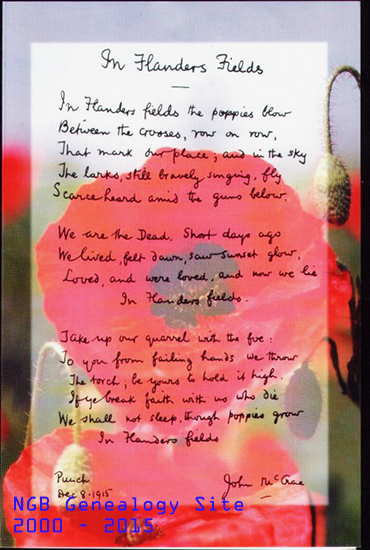 In Flanders Fields
In Flanders fields the poppies blow
Between the crosses, row on row,
That mark our place; and in the sky
The larks, still bravely singing, fly
Scarce heard amid the guns below.
We are the Dead. Short days ago
We lived, felt dawn, saw sunset glow,
Loved, and were loved, and now we lie
In Flanders fields.
Take up our quarrel with the foe:
To you from failing hands we throw
The torch; be yours to hold it high.
If ye break faith with us who die
We shall not sleep, though poppies grow
In Flanders fields
Punch
Dec 8. 1915
John McCrae
NGB Genealogy Site
2000 - 2015